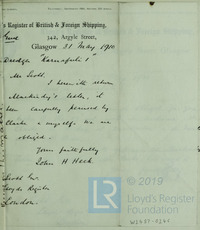 's Register of British & Foreign Shipping,
342, Argyle Street,
Glasgow 31 May 1910
Dredge Karnafuli I
Mr Scott.
I herewith return
Mackirdy's letter, it
been carefully perused by
Clarke & myself. We are
obliged.
Yours faithfully
John H Heck
Scott Esq.
Lloyds Register
London.
© 2019
LR
Lloyd's Register
Foundation